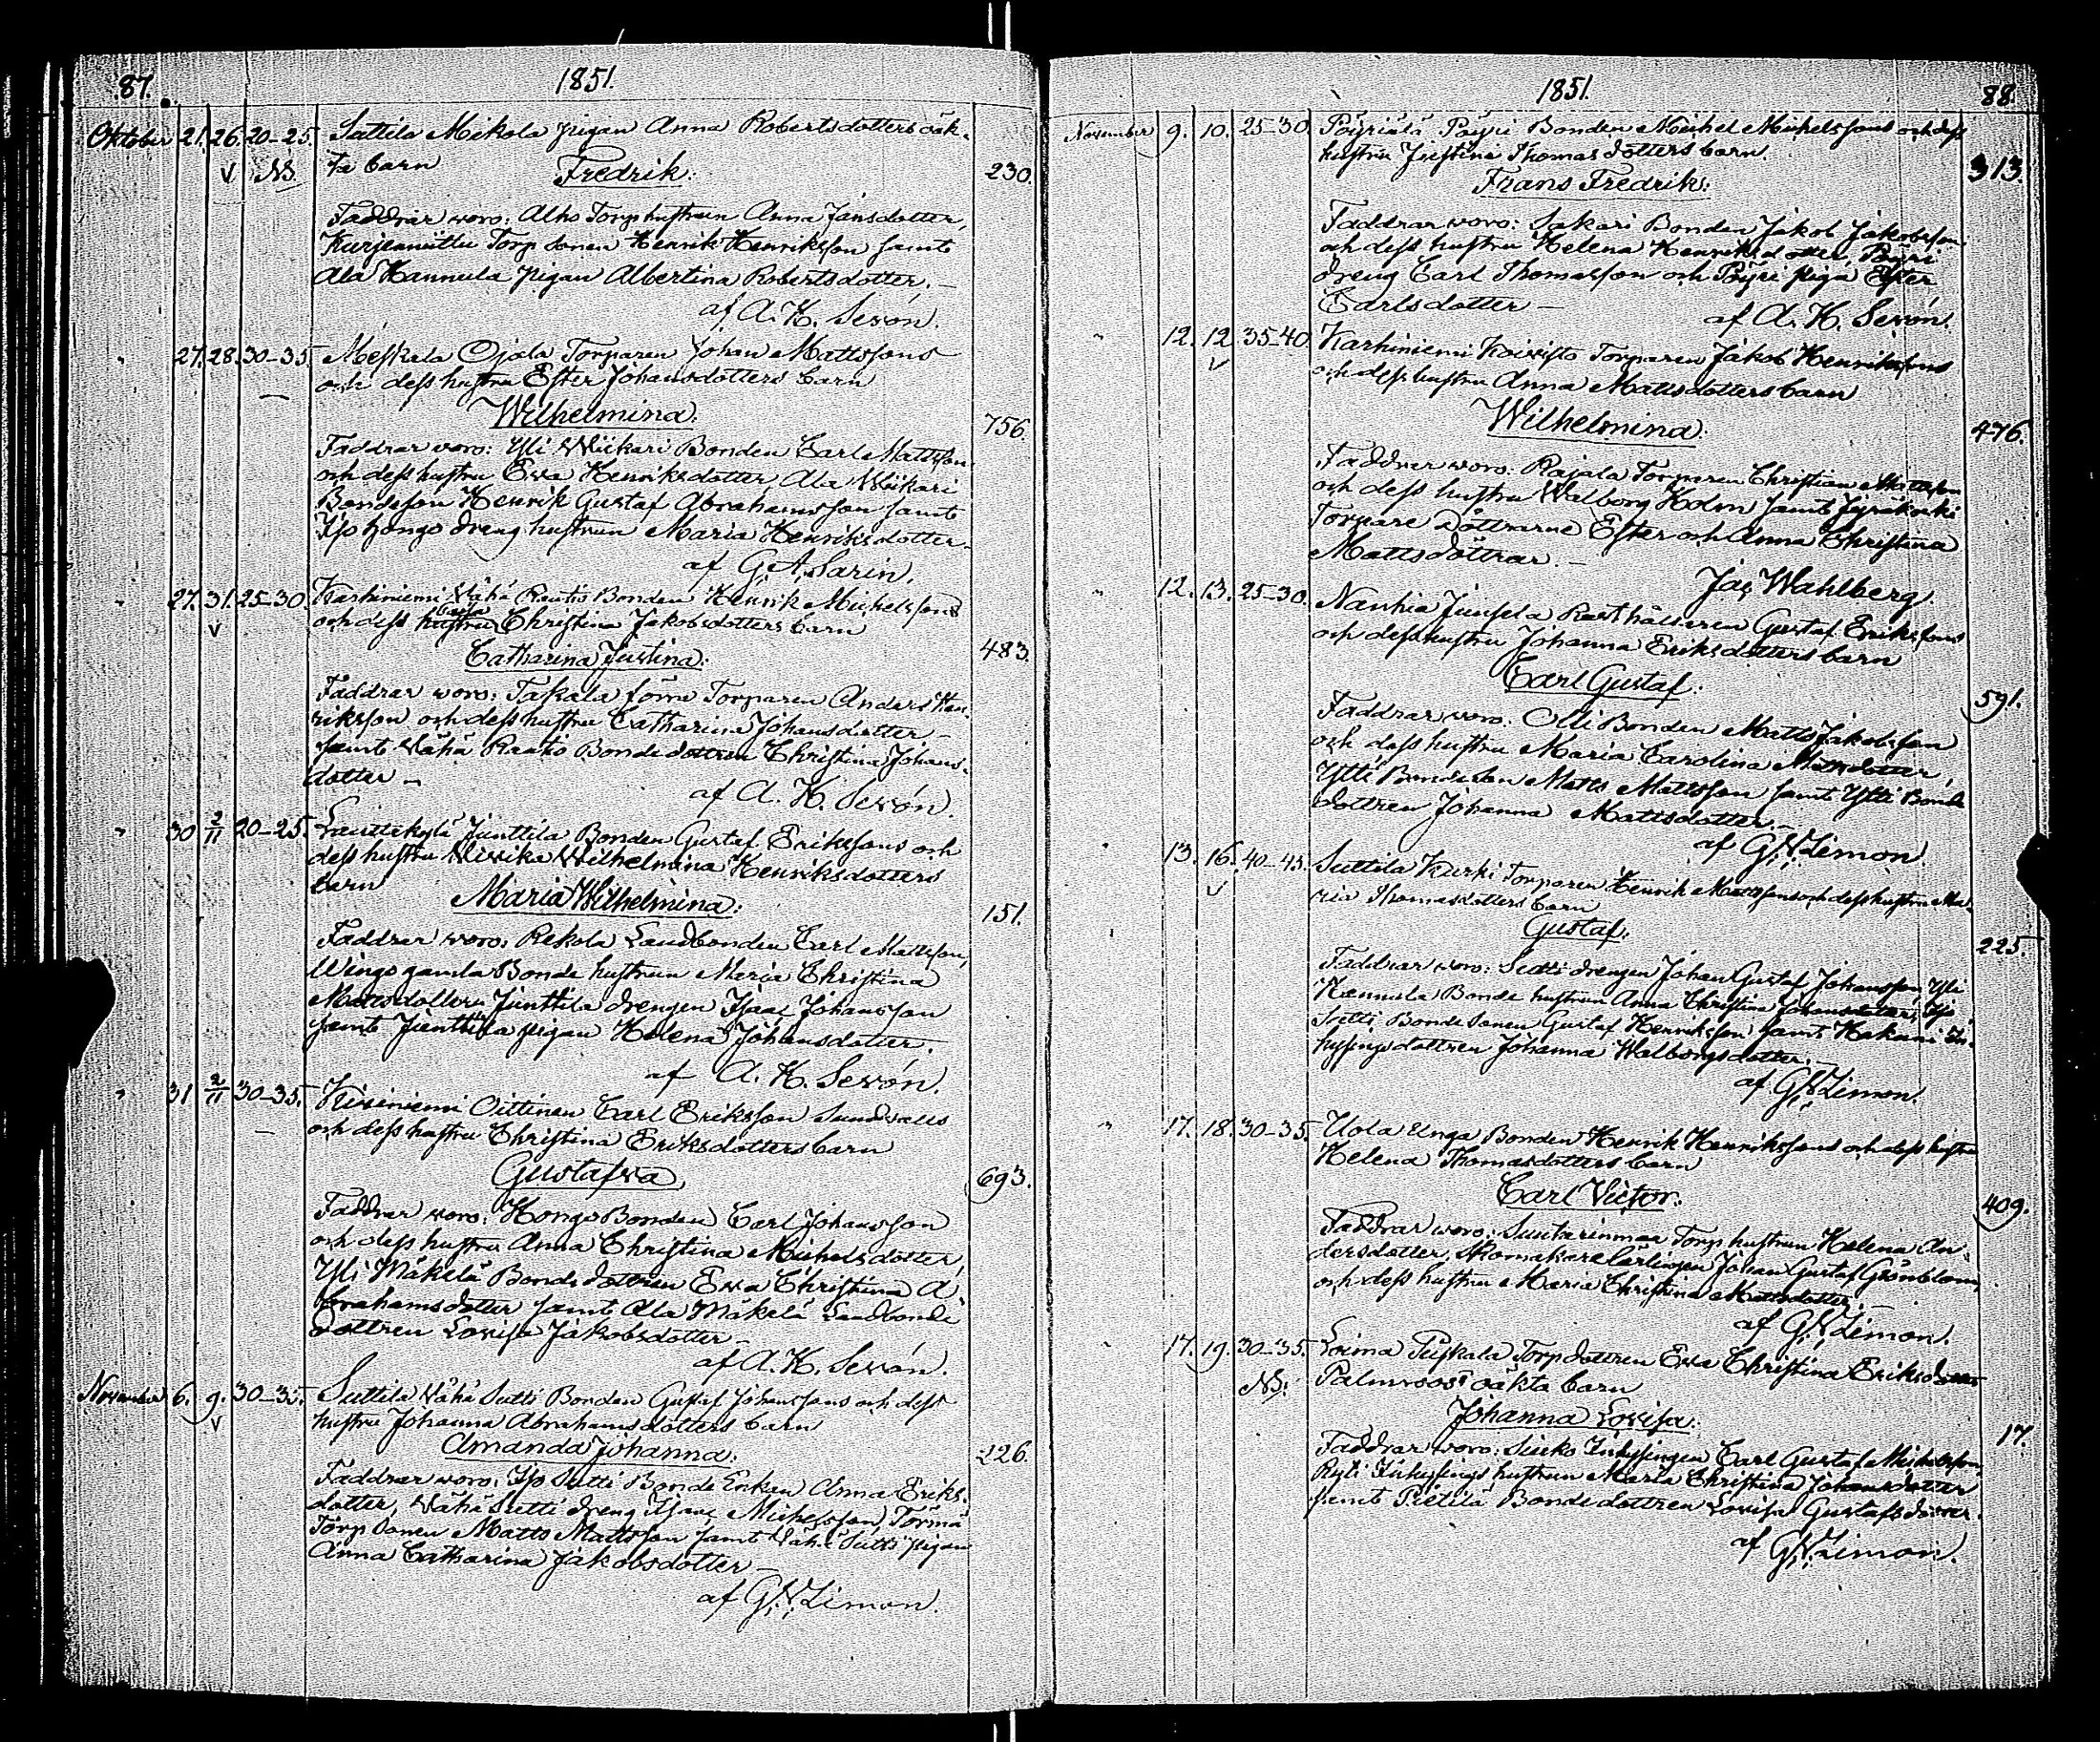 87.
1851.
Oktober 21. 26. 20-25. Suttila Mikola pigan Anna Robertsdotters oäk-
NB. ta barn Fredrik: 230.
Faddrar woro: Alho Torphustrun Anna Jansdotter,
Kurjenmittu Torp sonen Henrik Henriksson samt
Ala Hannula pigan Albertina Robertsdotter. —
af A. H. Sevón.
" 27. 28. 30-35. Meskala Ojala Torparen Johan Mattssons
och dess hustru Ester Johansdotters barn
Wilhelmina: 756.
Faddrar woro: Yli Wiikari Bonden Carl Mattsson
och dess hustru Ewa Henriksdotter Ala Wiikari
Bondeson Henrik Gustaf Abrahamsson samt
Iso hongo dreng hustrun Maria Henriksdotter.
af G. A. Sarin.
" 27. 31. 25-30. Karhiniemi Wähä Rautio Bonden Henrik Michelssons
och dess hustru Christina Jakobsdotters barn
Catharina Justina: 483.
Faddrar woro: Taskala förre Torparen Anders Hen-
riksson och dess hustru Catharina Johansdotter —
samt Wähä Rautio Bonde dottren Christina Johans-
dotter —
af A. H. Sevón.
" 30 2/11 20-25. Lauttakylä Junttila Bonden Gustaf Erikssons och
dess hustru Wiwika Wilhelmina Henriksdotters
barn Maria Wilhelmina: 151.
Faddrar woro: Rekola Landbonden Carl Mattsson,
Wingo gamla Bonde hustrun Maria Christina
Mattsdotter Junttila drengen Isaac Johansson
samt Junttila pigan Helena Johansdotter.
af A. H. Sevón.
" 31 2/11 30-35. Kiviniemi Oittinen Carl Eriksson Sundvalls
och dess hustru Christina Eriksdotters barn
Gustafva, 693.
Faddrar woro: Hongo Bonden Carl Johansson
och dess hustru Anna Christina Michelsdotter,
Yli Mäkelä Bonde dottren Ewa Christina A-
brahamsdotter samt Ala Mäkelä Landbonde
dottren Lovisa Jakobsdotter —
af A. H. Sevón.
November 6. 9. 30-35. Suttila Wähä Sutti Bonden Gustaf Johanssons och dess
hustru Johanna Abrahamsdotters barn
Amanda Johanna: 226.
Faddrar woro: Iso Sutti Bonde Enkan Anna Eriks-
dotter, Wähä Sutti dreng Isaac Michelsson, Törmä
Torp sonen Matts Mattsson samt Wähä Sutti pigan
Anna Catharina Jakobsdotter —
af G. W. Limon.
1851.
88.
November 9. 10. 25-30. Pöyriälä Pöyri Bonden Michel Michelssons och dess
hustru Justina Thomasdotters barn.
Frans Fredrik: 313.
Faddrar woro: Sakari Bonden Jakob Jakobsson,
och dess hustru Helena Henriksdotter, Pöyri
dreng Carl Thomasson och Pöyri piga Ester
Carlsdotter —
af A. H. Sevón.
" 12. 12 35-40. Karhiniemi Koivisto Torparen Jakob Henrikssons
och dess hustru Anna Mattsdotters barn
Wilhelmina: 476.
Faddrar woro: Rajala Torparen Christian Mattsson
och dess hustru Walborg Holm samt
Torpare döttrarne Ester och Anna Christina
Mattsdöttrar. —
Jac. Wahlberg.
" 12. 13. 25-30. Nanhia Junsela Rusthållaren Gustaf Erikssons
och dess hustru Johanna Eriksdotters barn
Carl Gustaf: 591.
Faddrar woro: Olli Bonden Matts Jakobsson
och dess hustru Maria Carolina Mattsdotter,
Ylli Bondeson Matts Mattsson samt Ylli Bonde
dottren Johanna Mattsdotter —
af G. W. Limon
" 13. 16. 40-45. Suttila Kurki Torparen Henrik Mattssons och dess hustru Ma-
ria Thomasdotters barn
Gustaf: 225.
Faddrar woro: Sutti drengen Johan Gustaf Johansson, Yli
Hannula Bonde hustrun Anna Christina Johansdotter, Iso
Sutti Bonde sonen Gustaf Henriksson samt Hakuni In-
hysings dottren Johanna Walborgsdotter. —
af G. W. Limon.
" 17. 18. 30-35. Uola Unga Bonden Henrik Henrikssons och dess hustru
Helena Thomasdotters barn
Carl Victor: 409.
Faddrar woro: Suutarinmaa Torp hustrun Helena An-
dersdotter, Skomakare lärlingen Johan Gustaf Grönblom,
och dess hustru Maria Christina Mattsdotter. —
af G. W. Limon.
" 17. 19. 30-35. Loima Puskala Torp dottren Ewa Christina Eriksdotter
NB: Palmroos' oäkta barn
Johanna Lovisa: 17.
Faddrar woro: Inhysingen Carl Gustaf Michelsson,
Inhysings hustrun Maria Christina Johansdotter
samt Pietilä Bonde dottren Lovisa Gustafsdotter.
af G. W. Limon.